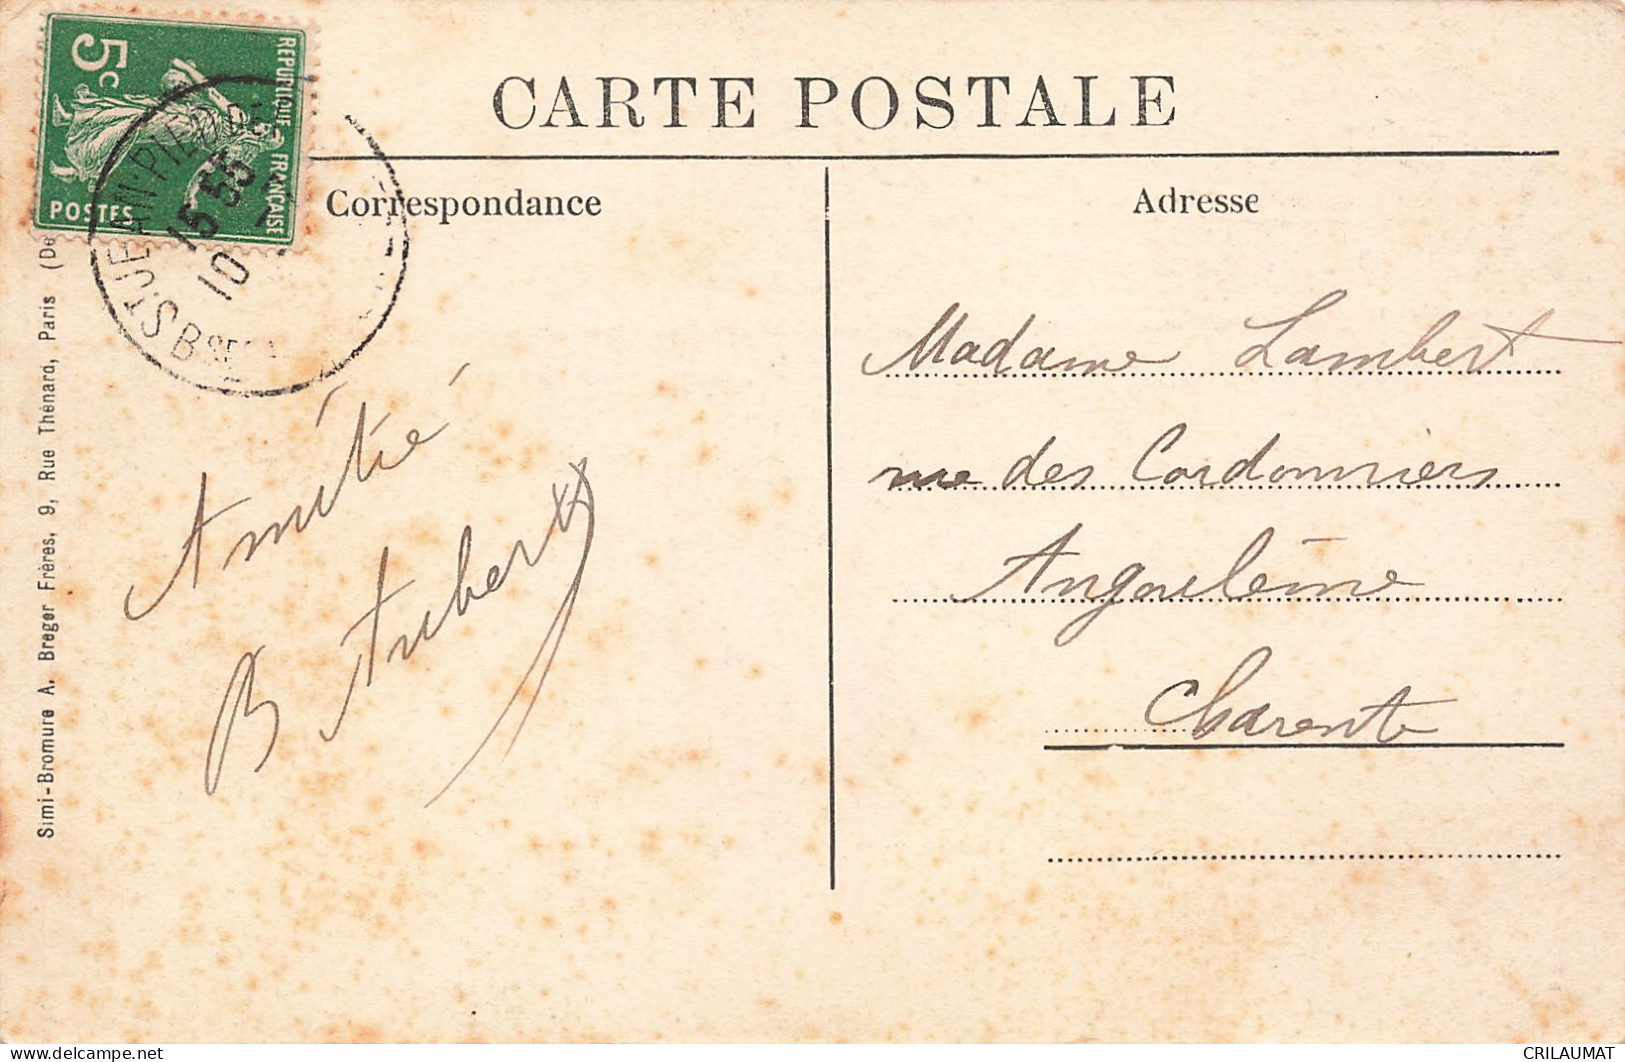 CARTE POSTALE
RÉPUBLIQUE FRANÇAISE
5c
POSTES
ST JEAN-PIED-DE
15 55
10
BSES
Correspondance
Adresse
Simi-Bromure A. Breger Frères, 9, Rue Thénard, Paris (De
Amitié
B Aubert
Madame Lambert
rue des Cordonniers
Angoulême
Charente
CRILAUMAT